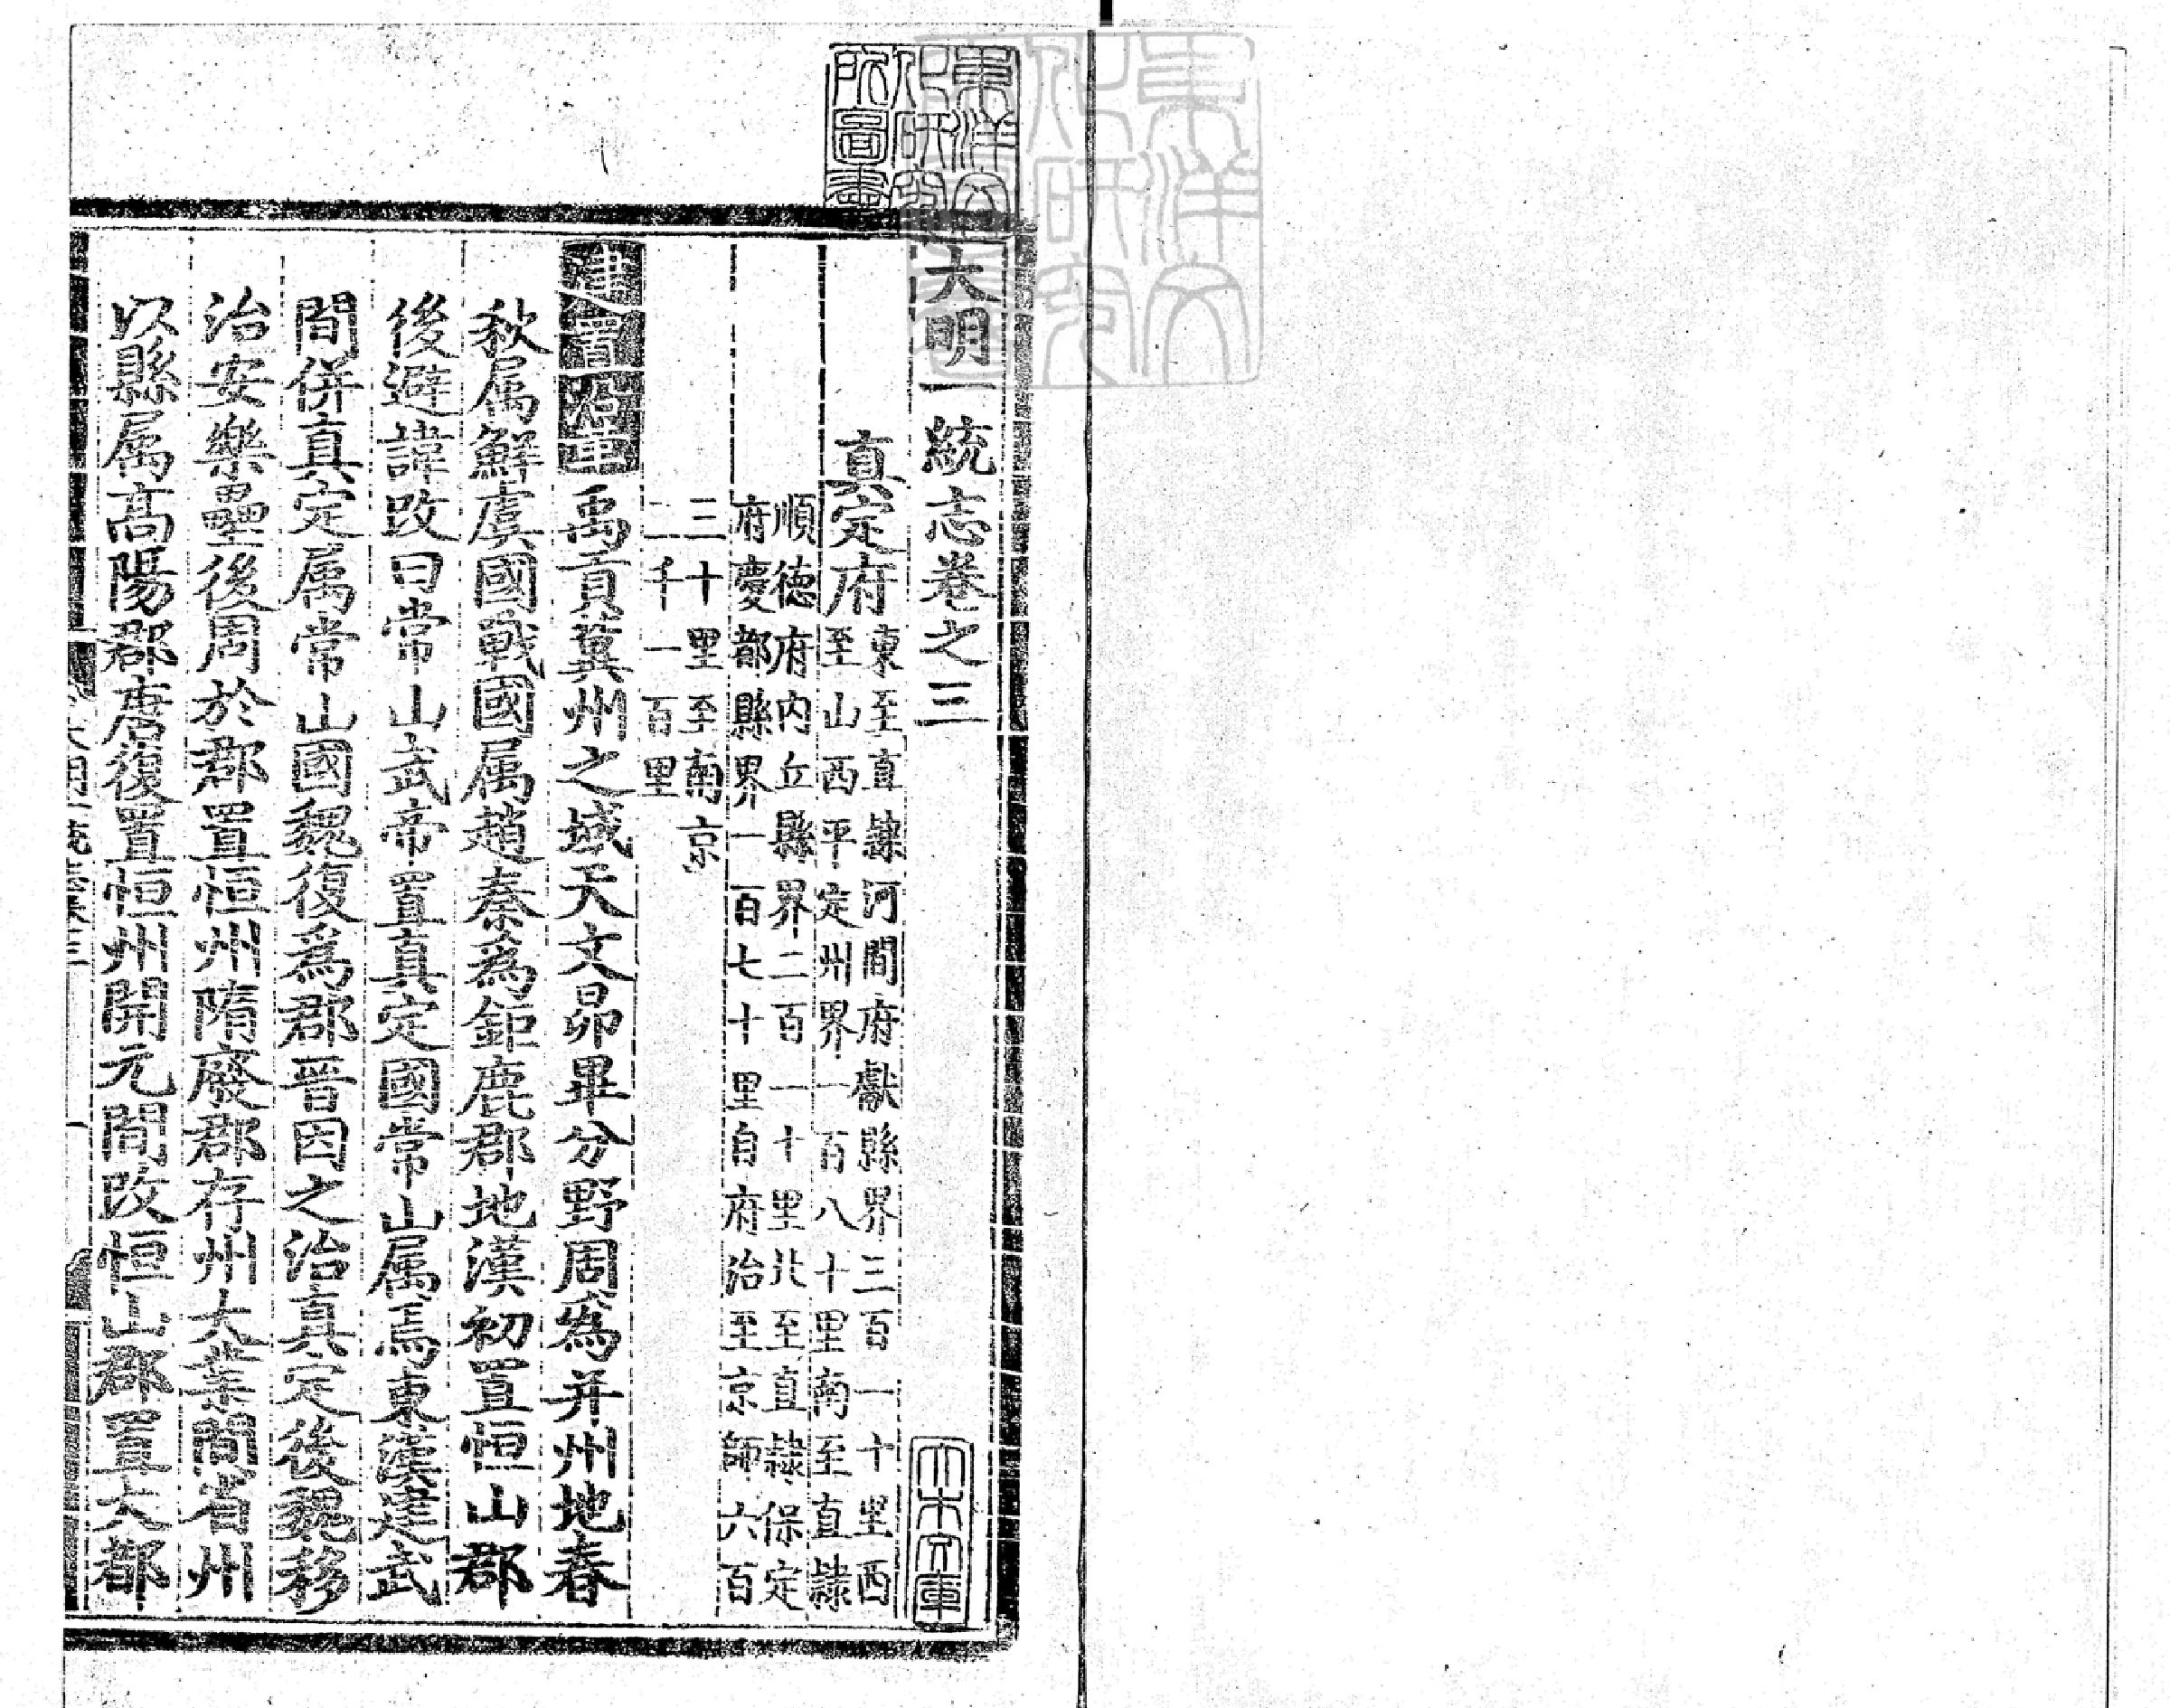 大明一統志卷之三
真定府東至直隷河間府獻縣界三百一十里西
至山西平定州界一百八十里南至直隷
順德府内丘縣界二百一十里北至直隷保定
府慶都縣界一百七十里自府治至京師六百
三十里至南京
二千一百里
建置沿革禹貢冀州之域天文昴畢分野周爲并州地春
秋属鮮虞國戰國属趙秦爲鉅鹿郡地漢初置恒山郡
後避諱改曰常山武帝置真定國常山属焉東漢建武
間併真定属常山國魏復爲郡晋因之治真定後魏移
治安樂壘後周於郡置恒州隋廢郡存州大業間省州
以縣属高陽郡唐復置恒州開元間改恒山郡置大都
東洋文化研究所圖書
大木文庫